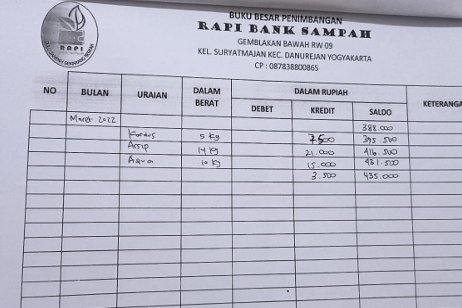 BUKU BESAR PENIMBANGAN
RAPI BANK SAMPAH
GEMBLAKAN BAWAH RW 09
KEL. SURYATMAJAN KEC. DANUREJAN YOGYAKARTA
CP : 087838800865
RAPI
NO BULAN URAIAN DALAM BERAT DALAM RUPIAH KETERANGA
DEBET KREDIT SALDO
Maret 2022 388.000
Kardus 5 kg 7.500 395.500
Arsip 14 kg 21.000 416.500
Aqua 10 kg 15.000 431.500
3.500 435.000